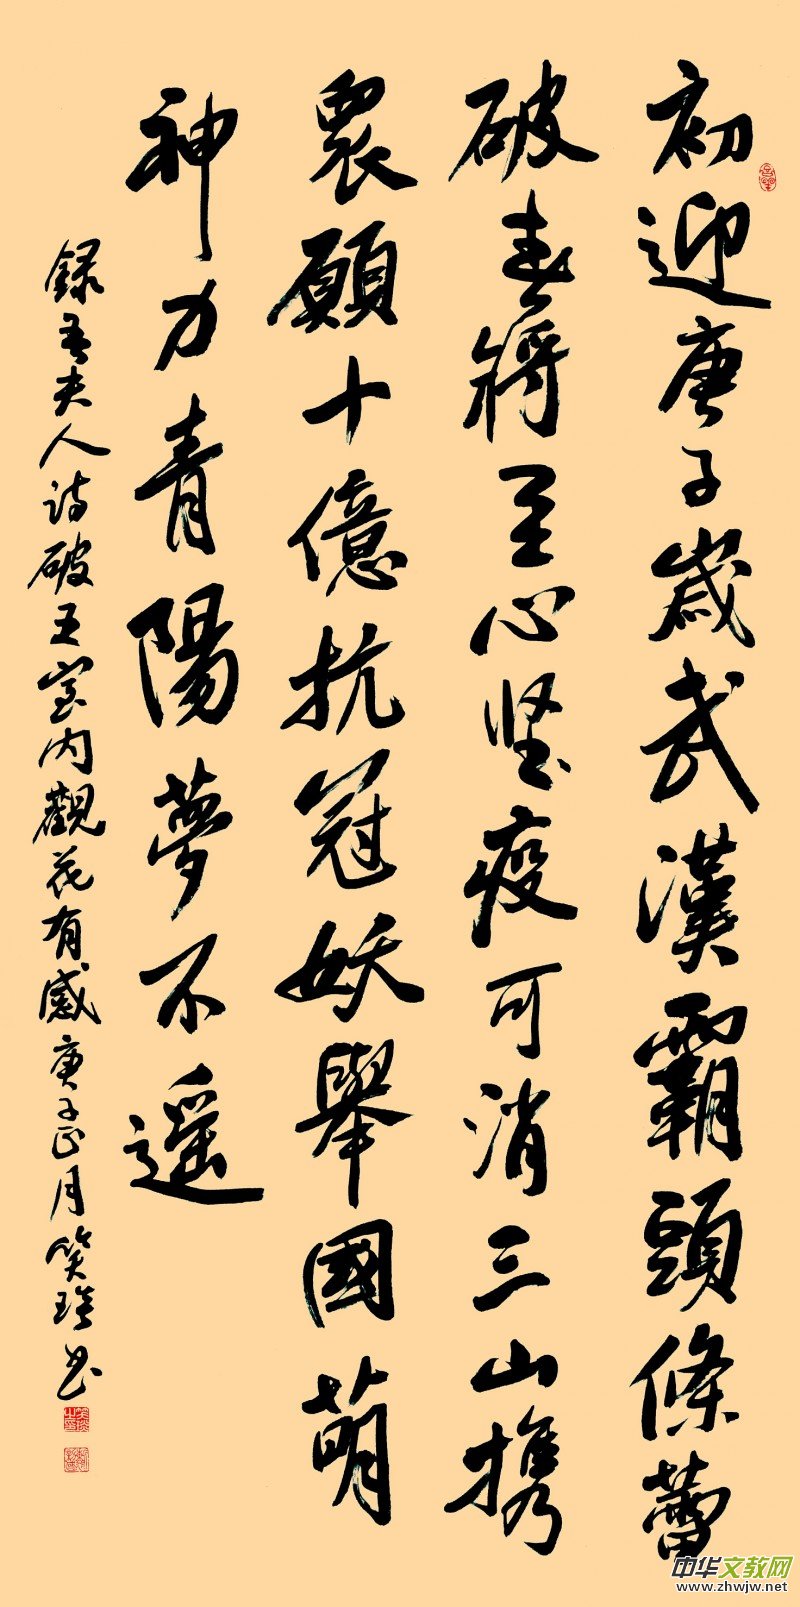 初迎庚子歲武漢霸頭條蕾
破春將至心坚疫可消三山携
眾願十億抗冠妖舉國萌
神力青陽夢不遥
錄吾夫人诗破五室内觀花有感庚子正月笑琀书
中华文教网
www.zhwjw.net